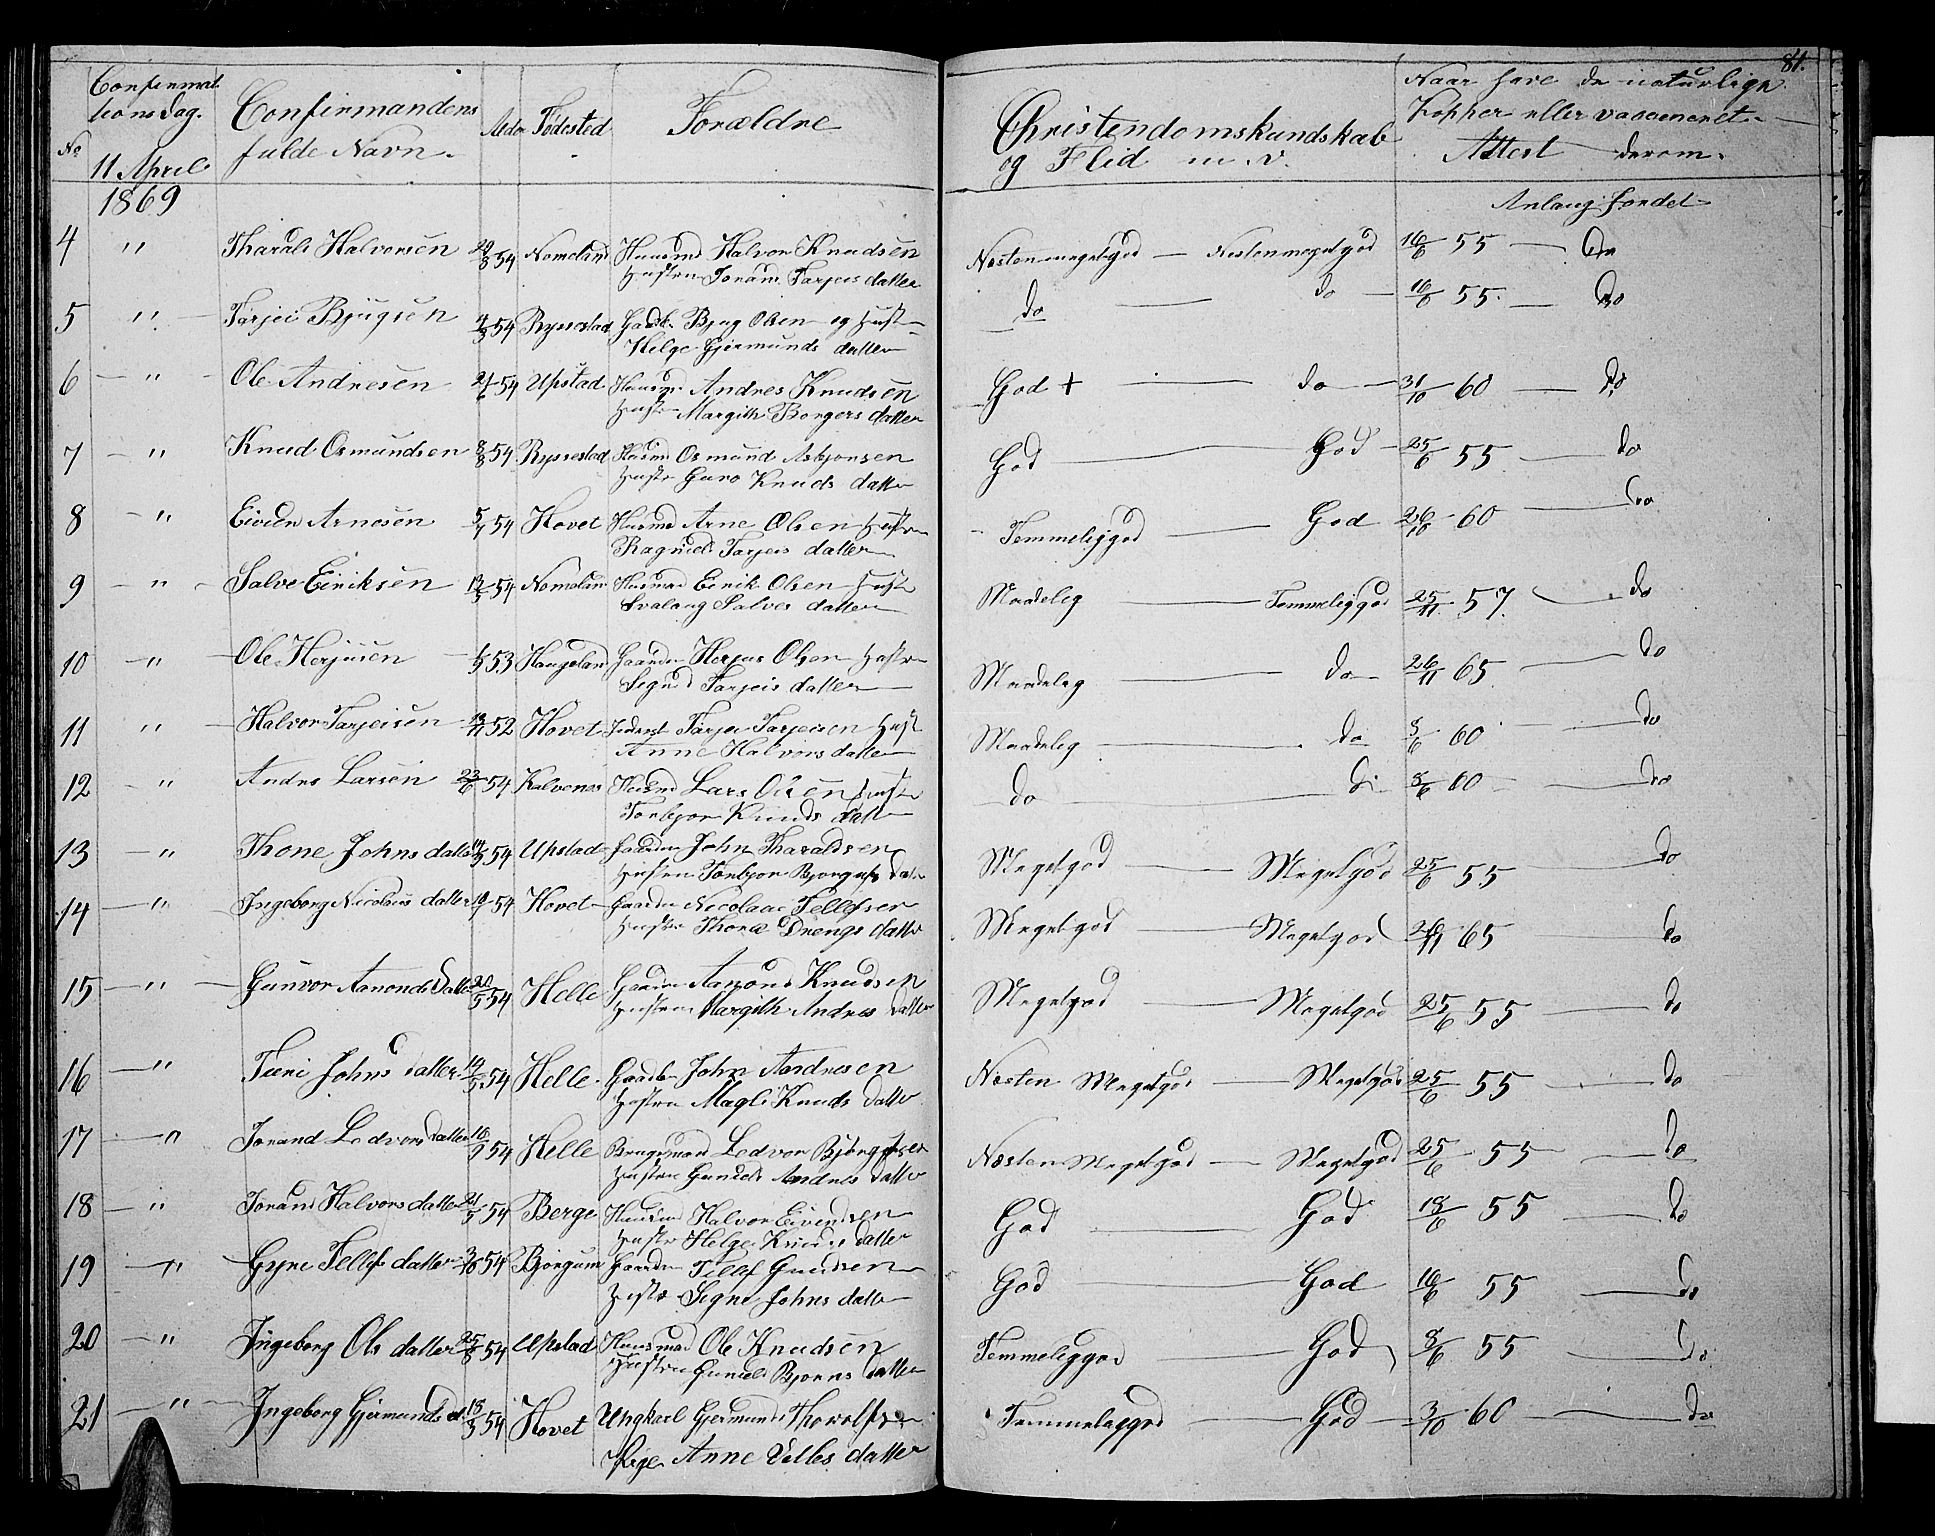 81.
Confirmat
ions Dag.
No
11 April
1869
Confirmandens
fulde Navn.
Alder
Fødested
Forældre
Christendomskundskab
og Flid m. v.
Naar have de naturlige
Kopper eller vaccineret.
Attest derom.
4 " Tharald Halvorsen 54 Nomeland Huusmd Halvor Knudsen
Hustru Joraand Tarjeis datter
Næsten megetgod — Næsten megetgod 16/6 55 — Do
5 " Tarjei Bjugsen 54 Rysestad Gaardbr. Bjug Olsen og Hustru
Helge Gjermunds datter
do — do — 16/6 55. — Do
6 — " Ole Andresen 54 Upstad Huusmd Andres Knudsen
Hustru Margith Borgers datter
God + — do — 31/10 60 — Do
7 — " Knud Osmundsen 8/8 54 Rysestad Huusm Osmund Asbjørnsen
Hustr Guro Knuds datter
God — God — 25/6 55. — do
8 — " Eivind Arnesen 54 Hovet Huusmd Arne Olsen Hustru
Ragnild Tarjeis datter
Temmeliggod — God 26/10 60 — do
9 — " Salve Eiriksen 54 Nomeland Huusmd Eirik Olsen Hustr
Svalaug Salves datter
Maadelig — Temmeliggod 25/11 57. — do
10 — " Ole Herjusen 53 Haugeland Gaardm Herjus Olsen Hustru
Signe Tarjeis datter
Maadelig — do — 26/11 65 — do
11 " Halvor Tarjeisen 52 Hovet Tarjei Tarjeisen Hust
Anne Halvors datter
Maadelig — do 60 — do
12 — " Andres Larsen 23/6 54 Kalvenes Huusmd Lars Olsen Hustru
Torbjør Knuds datter
do — do 8/6 60 — do
13 — " Thone Johns datter 54 Upstad Gaardm John Tharaldsen
Hustru Torbjør Bjørgufs dat
Megetgod — Megetgod 25/6 55 — do
14 — " Ingeborg Nicolaus datter 54 Hovet Gaardm Nicolaus Tellefsen
Hustru Thora Drengs datter
Megetgod — Megetgod 26/11 65 — do
15 — " Gunvor Aamonds Datter 20/5 54 Helle Gaardm Aamond Knudsen
Hustru Margith Andres datter
Megetgod — Megetgod 25/6 55 — do
16 — " Turi Johns datter 14/5 54 Helle Gaardbr John Andresen
Hustru Magli Knuds datter
Næsten Megetgod — Megetgod 25/6 55 — do
17 — " Jorand Ledvors datter 54 Helle Brugsmand Ledvor Bjørgufsen
Hustru Gunild Andres datter
Næsten Megetgod — Megetgod 25/6 55 — do
18 — " Jorand Halvors datter 21/5 54 Berge Huusmd Halvor Eivendsen
Hustr Helge Knuds datter
God — God 18/6 55 — do
19 — " Gyne Tellefs datter 54 Bjørgum Gaardm Tellef Gundersen
Hustr Signe Johns datter
God — God 16/6 55 — do
20 — " Ingeborg Ols datter 25/8 54 Upstad Huusmand Ole Knudsen
Hustru Gunild Bjørns datter
Temmeliggod — God 8/6 55 — do
21 — " Ingeborg Gjermunds d. 18/3 54 Hovet Ungkarl Gjermund Thorolfsen
Pige Anne Villes datter
Temmeliggod — God — 3/10 60 — do